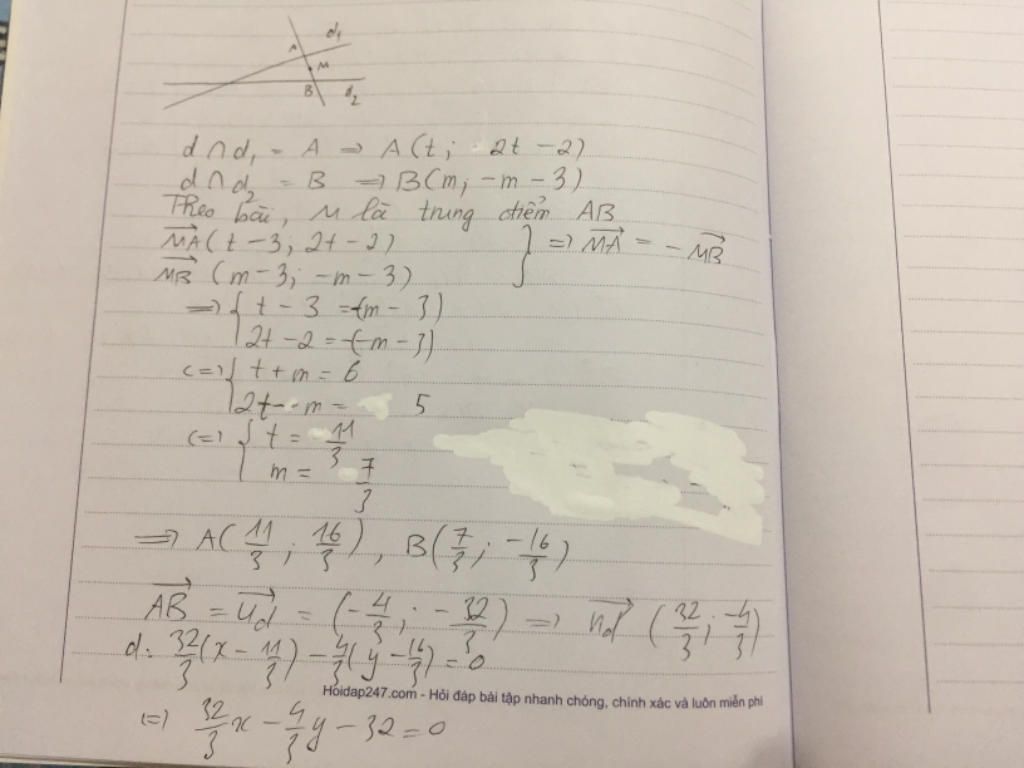 A
d₁
M
B
d₂
d ∩ d₁ = A ⇒ A(t; 2t - 2)
d ∩ d₂ = B ⇒ B(m; -m - 3)
Theo bài, M là trung điểm AB
MA→(t - 3; 2t - 2)
MB→(m - 3; -m - 3) } ⇒ MA→ = - MB→
⇒ { t - 3 = -(m - 3)
2t - 2 = -(-m - 3)
<=> { t + m = 6
2t - m = 5
<=> { t = 11/3
m = 7/3
⇒ A(11/3; 16/3), B(7/3; -16/3)
AB→ = u_d→ = (-4/3; -32/3) ⇒ n_d→ (32/3; -4/3)
d: 32/3(x - 11/3) - 4/3(y - 16/3) = 0
Hoidap247.com - Hỏi đáp bài tập nhanh chóng, chính xác và luôn miễn phí
<=> 32/3x - 4/3y - 32 = 0